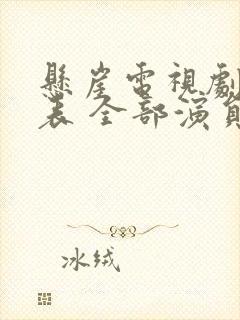 懸崖電視劇
表 全部演員
冰絨